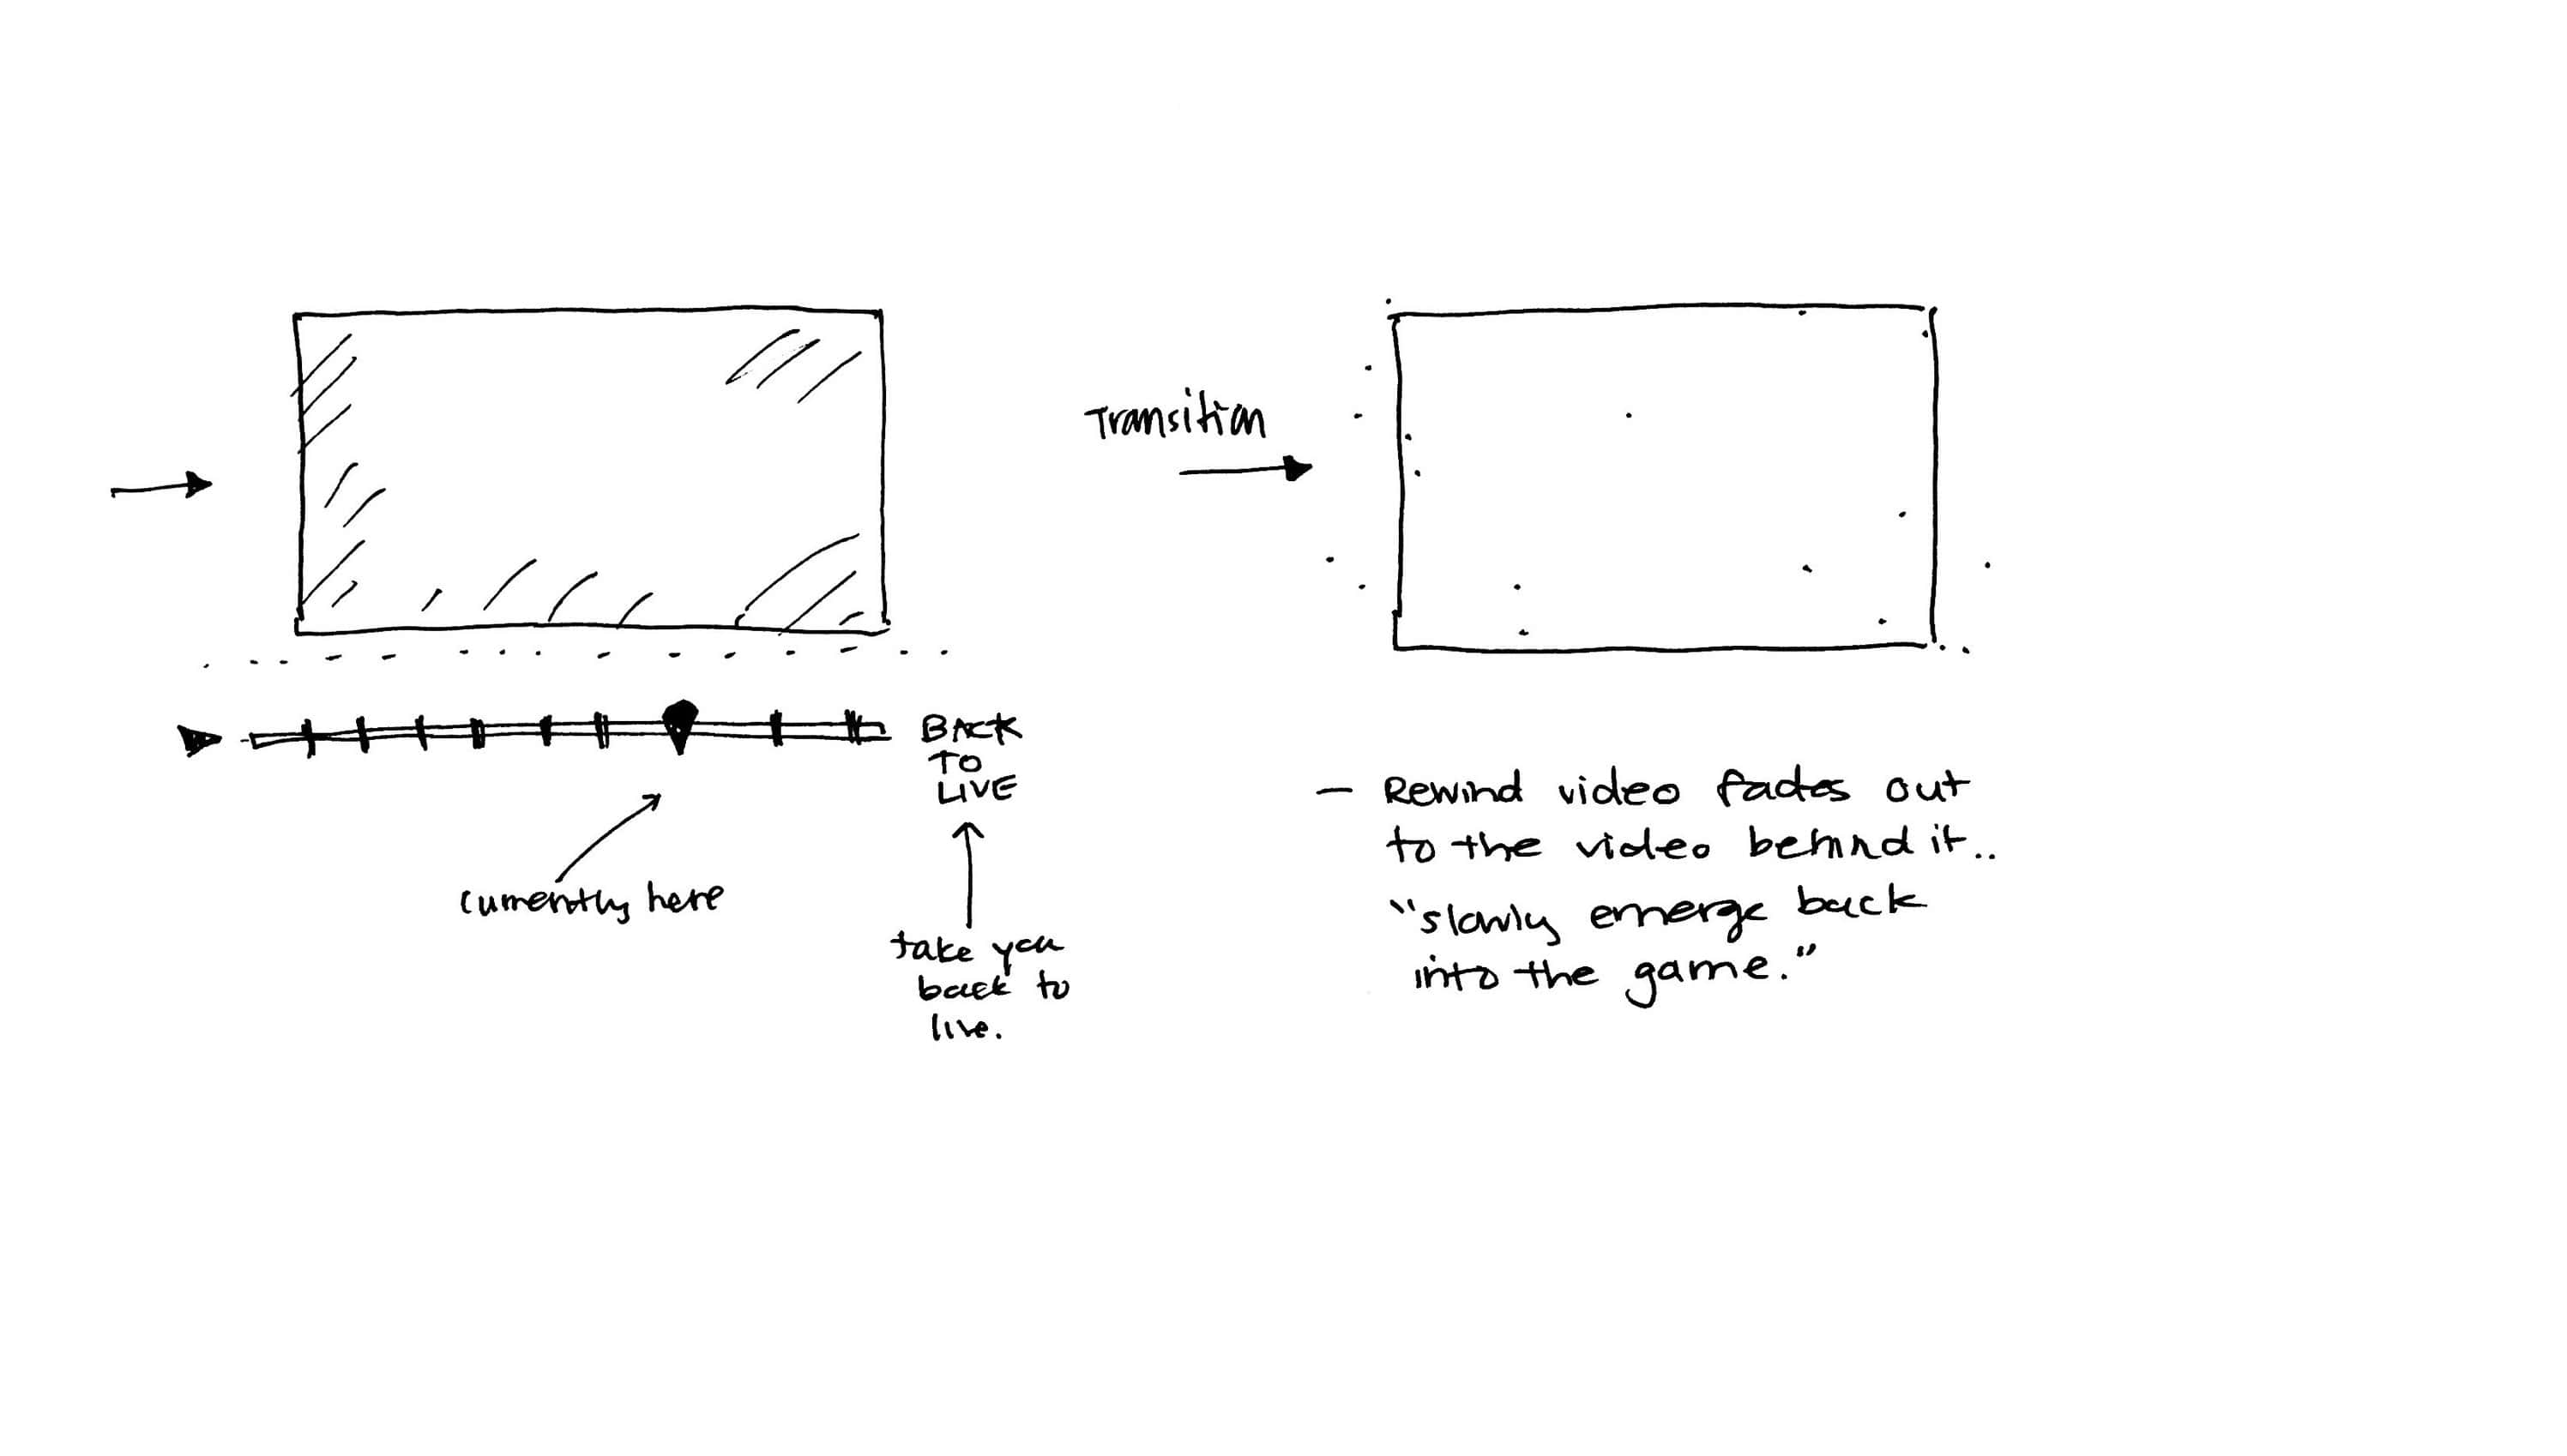 Transition
BACK
TO
LIVE
currently here
take you
back to
live.
- Rewind video fades out
to the video behind it..
"slowly emerge back
into the game."